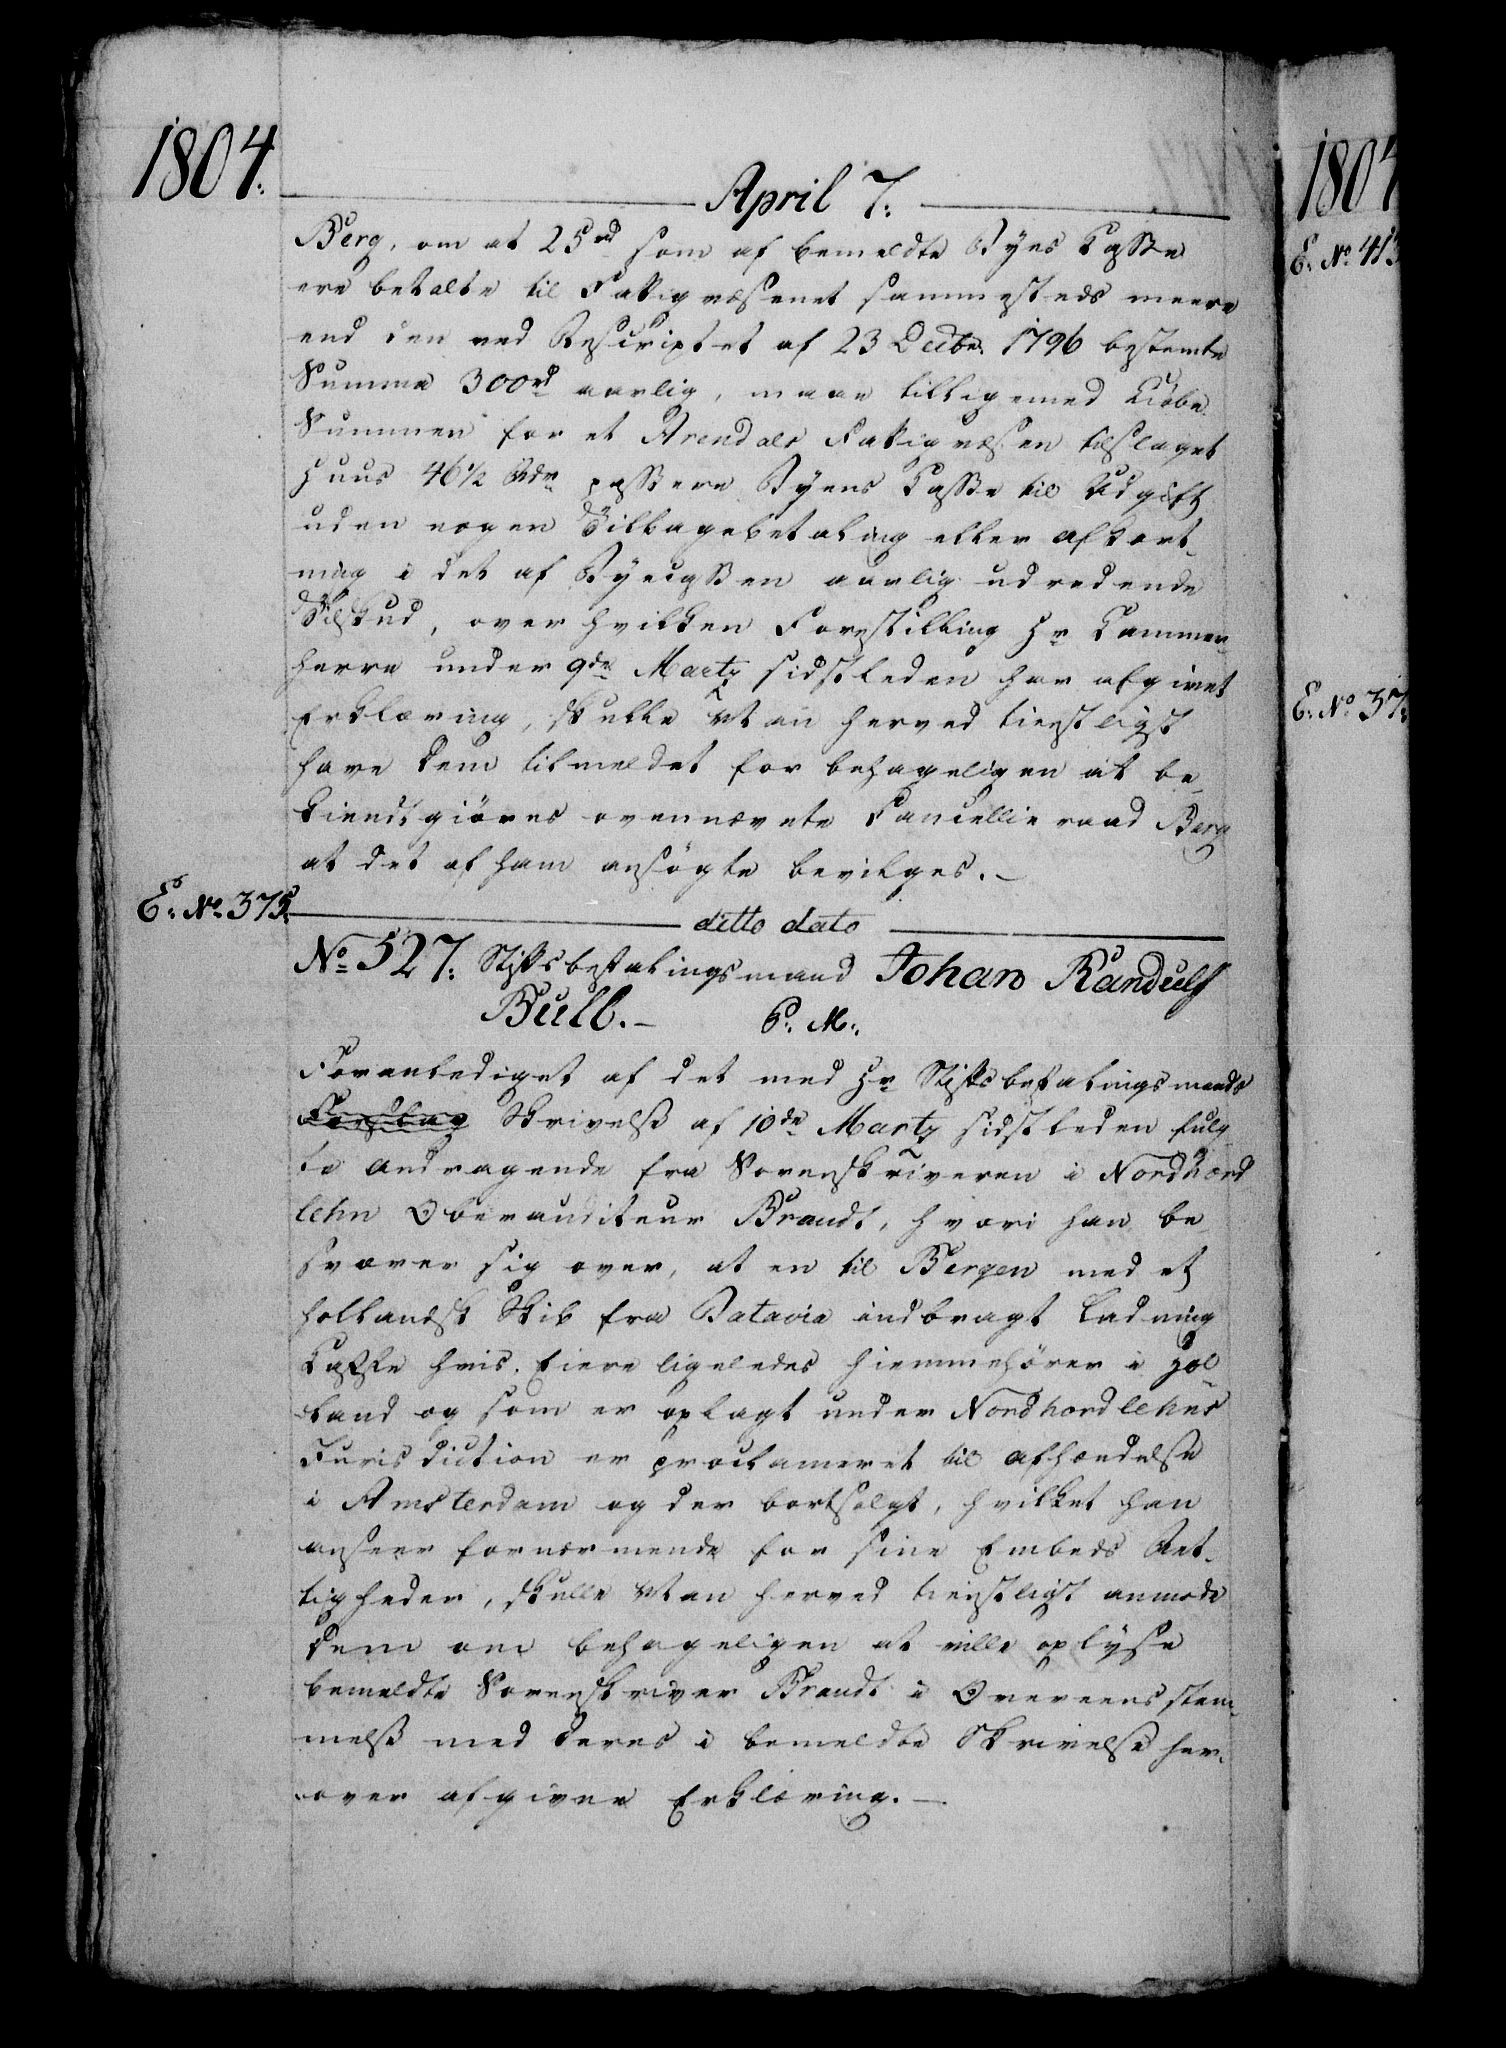 1804.
April 7.
Berg, om at 25 rd som af bemeldte Byes Casse
ere betalte til Fattigvæsenet sammesteds meere
end den ved Rescriptet af 23 Decbr. 1796 bestemte
Summa 300 rd aarlig, maae tilligemed Kiøbe
Summen for et Arendals Fattigvæsen tilslaget
Huus 46½ Rdr passere Byens Casse til Udgift
uden nogen Tilbagebetaling eller Afkort-
ning i det af Byecassen aarlig udredende
Tilskud, over hvilken Forestilling Hr Kammer-
herre under 9de Martz sidstleden har afgivet
Erklæring, skulle Man herved tienstligst
have Dem tilmeldet for behageligen at be-
kiendtgiøres ovennævnte Cancellieraad Berg
at det af ham ansøgte bevilges. –
E. No. 375.
ditto dato
No 527. Stiftsbefalingsmand Johan Randulf
Bull. – P. M.
Foranlediget af det med Hr Stiftsbefalingsmands
Forslag Skrivelse af 10de Martz sidstleden fulg-
te Andragende fra Sorenskriveren i Nordhord
lehn Oberauditeur Brandt, hvori han be-
sværer sig over, at en til Bergen med et
hollandsk Skib fra Batavia indbragt Ladning
Caffe hvis Eiere ligeledes hiemmehører i Hol-
land og som er oplagt under Nordhordlehns
Jurisdiction er proclameret til Afhændelse
i Amsterdam og der bortsolgt, hvilket han
anseer fornærmende for sine Embeds Ret-
tigheder, skulle Man herved tienstligst anmode
Dem om behageligen at ville oplyse
bemeldte Sorenskriver Brandt i Overeensstem-
melse med Deres i bemeldte Skrivelse her-
over afgivne Erklæring. –
1804
E. No. 413
E. No. 37